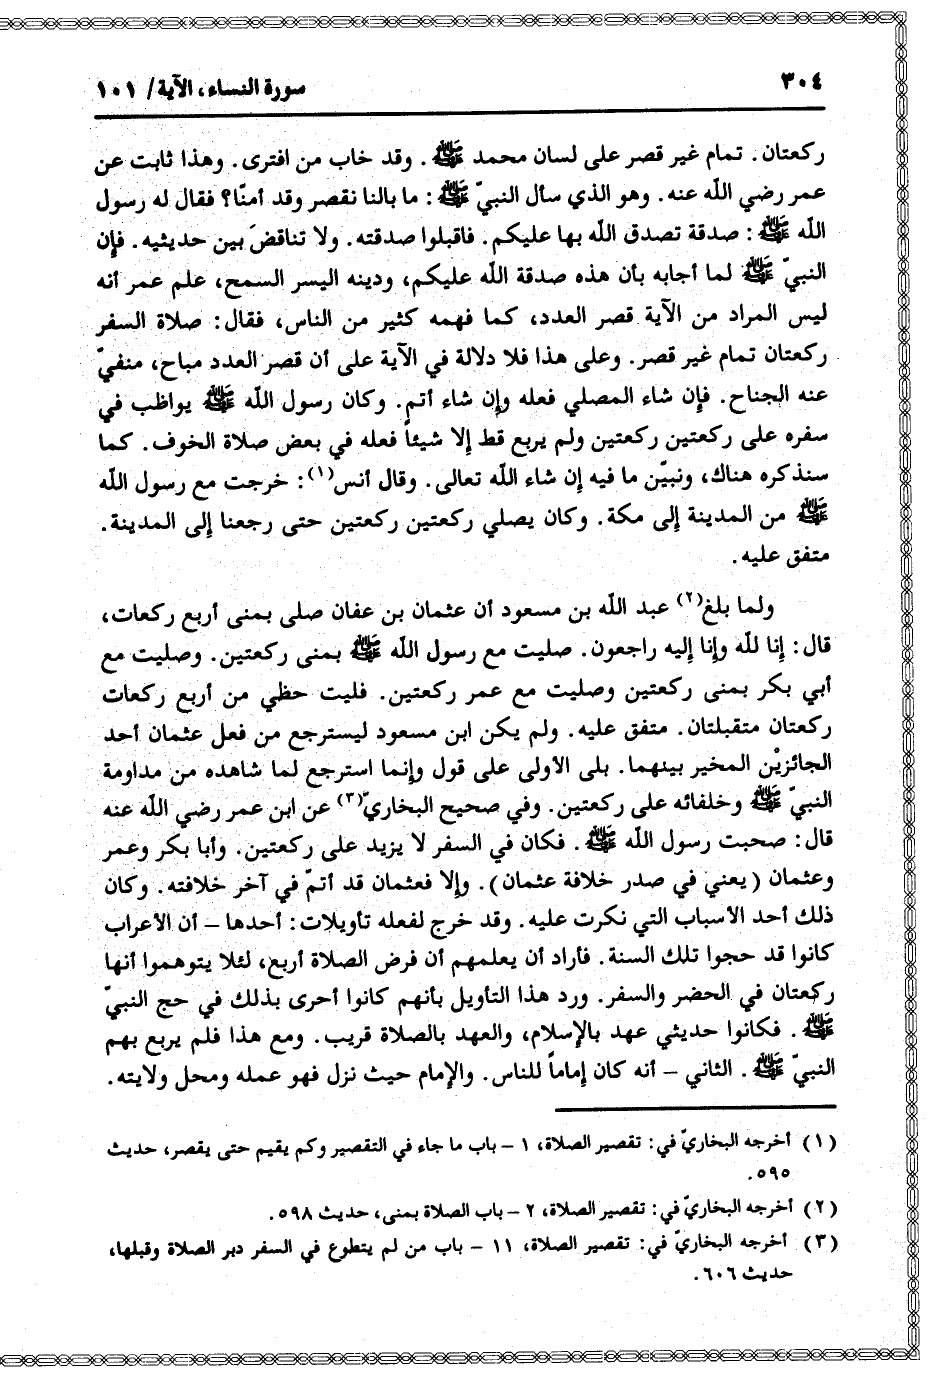 ٣٠٤
سورة النساء، الآية/ ١٠١
ركعتان. تمام غير قصر على لسان محمد ﷺ. وقد خاب من افترى. وهذا ثابت عن
عمر رضي اللّه عنه. وهو الذي سأل النبيّ ﷺ: ما بالنا نقصر وقد أمنّا؟ فقال له رسول
اللّه ﷺ: صدقة تصدق اللّه بها عليكم. فاقبلوا صدقته. ولا تناقضَ بين حديثيه. فإن
النبيّ ﷺ لما أجابه بأن هذه صدقة اللّه عليكم، ودينه اليسر السمح، علم عمر أنه
ليس المراد من الآية قصر العدد، كما فهمه كثير من الناس، فقال: صلاة السفر
ركعتان تمام غير قصر. وعلى هذا فلا دلالة في الآية على أن قصر العدد مباح، منفيّ
عنه الجناح. فإن شاء المصلي فعله وإن شاء أتم. وكان رسول اللّه ﷺ يواظب في
سفره على ركعتين ركعتين ولم يربع قط إلا شيئاً فعله في بعض صلاة الخوف. كما
سنذكره هناك، ونبيّن ما فيه إن شاء اللّه تعالى. وقال أنس(١): خرجت مع رسول اللّه
ﷺ من المدينة إلى مكة. وكان يصلي ركعتين ركعتين حتى رجعنا إلى المدينة.
متفق عليه.
ولما بلغ(٢) عبد اللّه بن مسعود أن عثمان بن عفان صلى بمنى أربع ركعات،
قال: إنا للّه وإنا إليه راجعون. صليت مع رسول اللّه ﷺ بمنى ركعتين. وصليت مع
أبي بكر بمنى ركعتين وصليت مع عمر ركعتين. فليت حظي من أربع ركعات
ركعتان متقبلتان. متفق عليه. ولم يكن ابن مسعود ليسترجع من فعل عثمان أحد
الجائزيْن المخير بينهما. بلى الاولى على قول وإنما استرجع لما شاهده من مداومة
النبيّ ﷺ وخلفائه على ركعتين. وفي صحيح البخاريّ(٣) عن ابن عمر رضي اللّه عنه
قال: صحبت رسول اللّه ﷺ. فكان في السفر لا يزيد على ركعتين. وأبا بكر وعمر
وعثمان (يعني في صدر خلافة عثمان). وإلا فعثمان قد أتمّ في آخر خلافته. وكان
ذلك أحد الأسباب التي نكرت عليه. وقد خرج لفعله تأويلات: أحدها – أن الأعراب
كانوا قد حجوا تلك السنة. فأراد أن يعلمهم أن فرض الصلاة أربع، لئلا يتوهموا أنها
ركعتان في الحضر والسفر. ورد هذا التأويل بأنهم كانوا أحرى بذلك في حج النبيّ
ﷺ. فكانوا حديثي عهد بالإسلام، والعهد بالصلاة قريب. ومع هذا فلم يربع بهم
النبيّ ﷺ. الثاني – أنه كان إماماً للناس. والإمام حيث نزل فهو عمله ومحل ولايته.
(١) أخرجه البخاريّ في: تقصير الصلاة، ١ – باب ما جاء في التقصير وكم يقيم حتى يقصر، حديث
٥٩٥.
(٢) أخرجه البخاريّ في: تقصير الصلاة، ٢ – باب الصلاة بمنى، حديث ٥٩٨.
(٣) أخرجه البخاريّ في: تقصير الصلاة، ١١ – باب من لم يتطوع في السفر دبر الصلاة وقبلها،
حديث ٦٠٦.